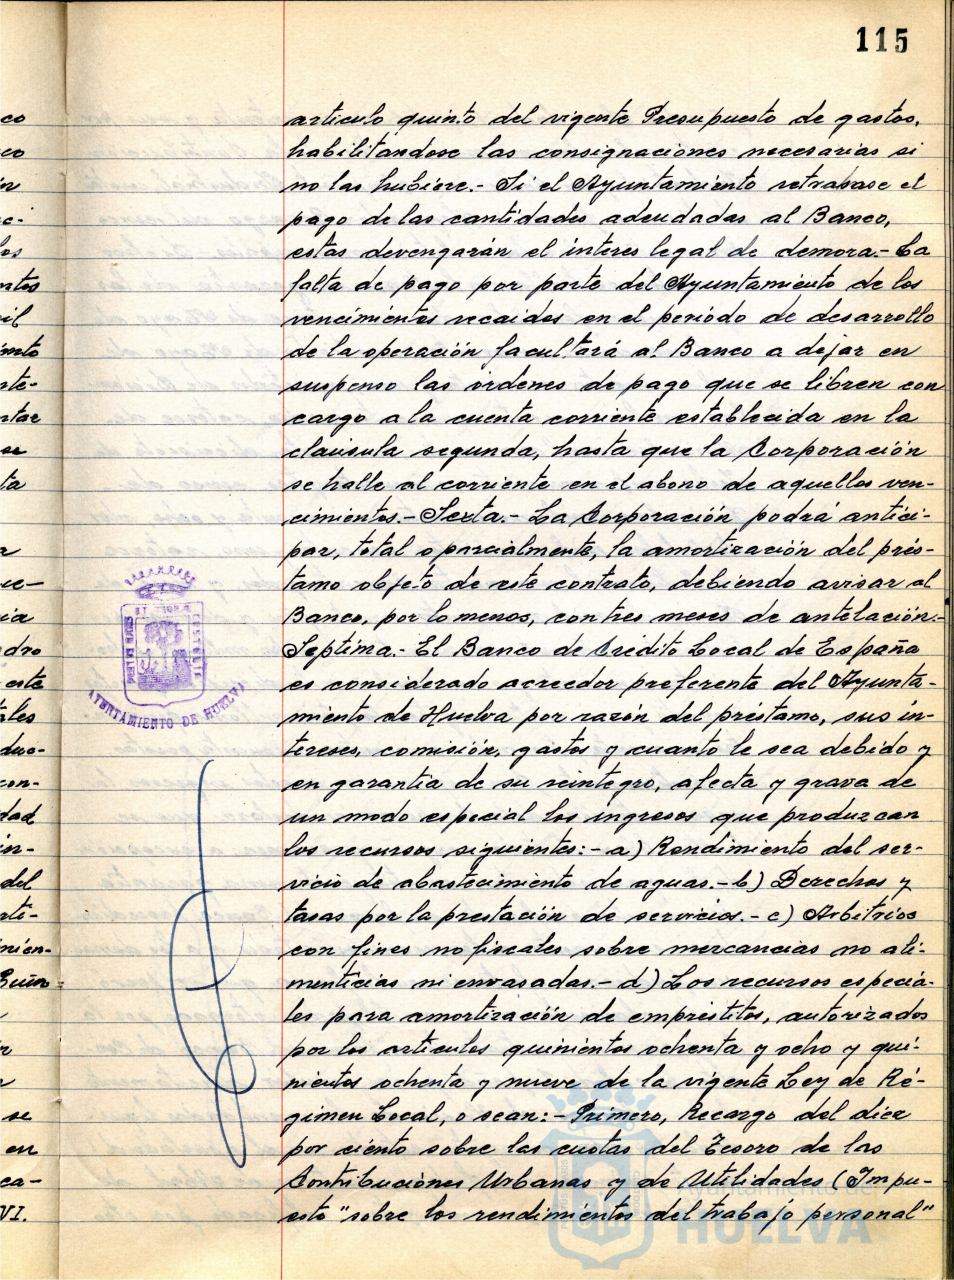 115
artículo quinto del vigente Presupuesto de gastos,
habilitandose las consignaciones necesarias si
no las hubiere.- Si el Ayuntamiento retrasase el
pago de las cantidades adeudadas al Banco,
estas devengarán el interes legal de demora.- La
falta de pago por parte del Ayuntamiento de los
vencimientos recaidos en el período de desarrollo
de la operación facultará al Banco a dejar en
suspenso las órdenes de pago que se libren con
cargo a la cuenta corriente establecida en la
claúsula segunda, hasta que la Corporación
se halle al corriente en el abono de aquellos ven-
cimientos.- Sexta.- La Corporación podrá antici-
par, total o parcialmente, la amortización del prés-
tamo objeto de este contrato, debiendo avisar al
Banco, por lo menos, con tres meses de antelación.-
Septíma.- El Banco de Crédito Local de España
es considerado acreedor preferente del Ayunta-
miento de Huelva por razón del préstamo, sus in-
tereses, comisión, gastos y cuanto le sea debido y
en garantía de su reintegro, afecta y grava de
un modo especial los ingresos que produzcan
los recursos siguientes:- a) Rendimiento del ser-
vicio de abastecimiento de aguas.- b) Derechos y
tasas por la prestación de servicios.- c) Arbitrios
con fines no fiscales sobre mercancias no ali-
menticias ni envasadas.- d) Los recursos especia-
les para amortización de empréstitos, autorizados
por los artículos quinientos ochenta y ocho y qui-
nientos ochenta y nueve de la vigente Ley de Ré-
gimen Local, o sean:- Primero, Recargo del diez
por ciento sobre las cuotas del Tesoro de las
Contribuciones Urbanas y de Utilidades (Impu-
esto "sobre los rendimientos del trabajo personal"
AYUNTAMIENTO DE HUELVA
Ayuntamiento de
HUELVA